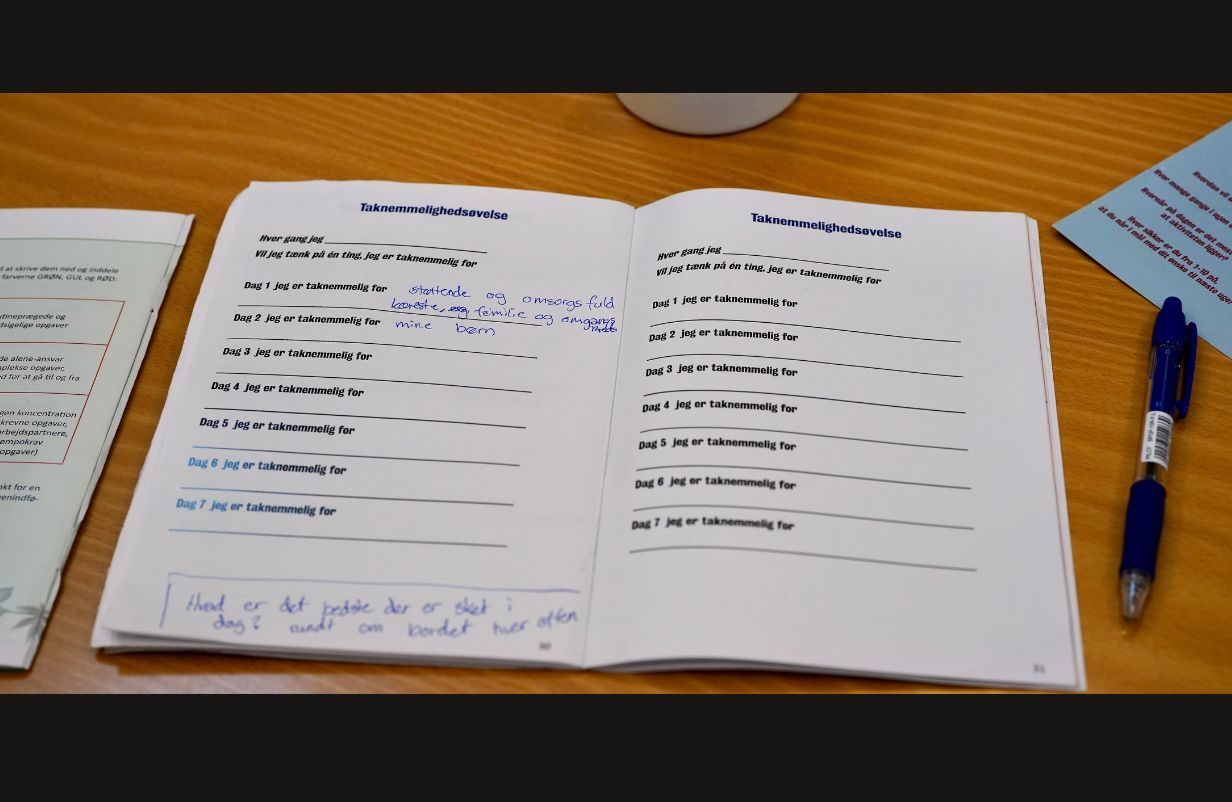 d at skrive dem ned og inddele
farverne GRØN, GUL og RØD:
utineprægede og
dsigelige opgaver
de alene-ansvar
plekse opgaver,
ed for at gå til og fra
gen koncentration
krevne opgaver,
arbejdspartnere,
empokrav
opgaver)
nkt for en
enindfø-
Taknemmelighedsøvelse
Hver gang jeg
Vil jeg tænk på én ting, jeg er taknemmelig for
Dag 1 jeg er taknemmelig for støttende og omsorgsfuld
kæreste, familie og omgangs
Dag 2 jeg er taknemmelig for mine børn
Dag 3 jeg er taknemmelig for
Dag 4 jeg er taknemmelig for
Dag 5 jeg er taknemmelig for
Dag 6 jeg er taknemmelig for
Dag 7 jeg er taknemmelig for
Hvad er det bedste der er sket i
dag? rundt om bordet hver aften
30
Taknemmelighedsøvelse
Hver gang jeg
Vil jeg tænk på én ting, jeg er taknemmelig for
Dag 1 jeg er taknemmelig for
Dag 2 jeg er taknemmelig for
Dag 3 jeg er taknemmelig for
Dag 4 jeg er taknemmelig for
Dag 5 jeg er taknemmelig for
Dag 6 jeg er taknemmelig for
Dag 7 jeg er taknemmelig for
31
Hvordan vil
Hvor mange gange i ugen
Hvornår på dagen er det mest
at aktiviteten ligger?
Hvor sikker er du fra 1-10 på,
at du når i mål med dit ønske til næste uge
PILOT